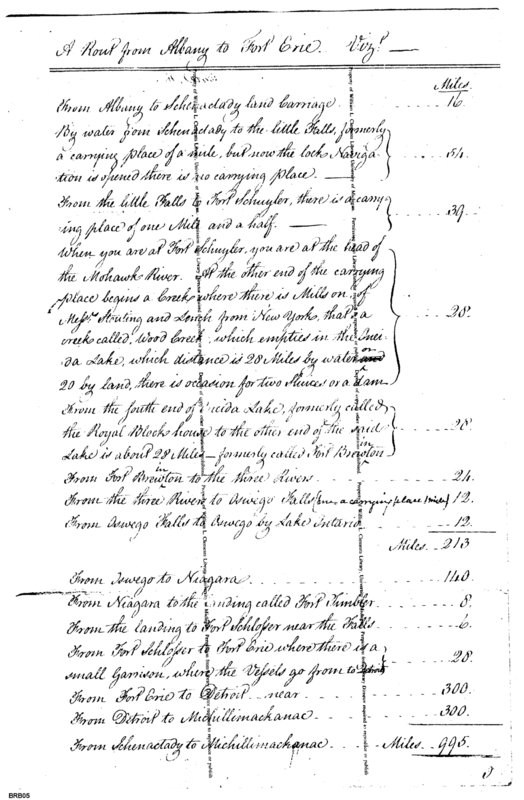 A Rout from Albany to Fort Erie. Vizt. —
Miles.
From Albany to Schenactady land Carriage. . . . . 16.
By water from Schenactady to the little Falls, formerly
a carrying place of a mile, but now the lock Naviga-
tion is opened there is no carrying place. — . . . . 54.
From the little Falls to Fort Schuyler, there is a carry-
ing place of one Mile and a half. — . . . . 39.
When you are at Fort Schuyler, you are at the head of
the Mohawk River. At the other end of the carrying
place begins a Creek where there is Mills on, of
Messrs. and from New York, that's a
creek called, Wood Creek, which empties in the Onei-
da Lake, which distance is 28 Miles by water and on
20 by land, there is occasion for two Sluices or a Dam . . . . 28.
From the south end of Oneida Lake, formerly called
the Royal Block house to the other end of the said
Lake is about 28 Miles — formerly called Fort Brewinton . . . . 28.
From Fort Brewinton to the three Rivers . . . . 24.
From the three Rivers to Oswego Falls (here a carrying place 1 mile) 12.
From Oswego Falls to Oswego by Lake Ontario . . . . 12.
Miles . . 213
From Oswego to Niagara . . . . 140.
From Niagara to the landing called Fort . . . . 8.
From the landing to Fort Schlosser near the Falls . . . . 6.
From Fort Schlosser to Fort Erie where there is a
small Garrison, where the Vessels go from to Detroit . . . . 28.
From Fort Erie to Detroit near . . . . 300.
From Detroit to Michillimackanac . . . . 300.
From Schenactady to Michillimackanac . . . Miles . . 995.
BRB05